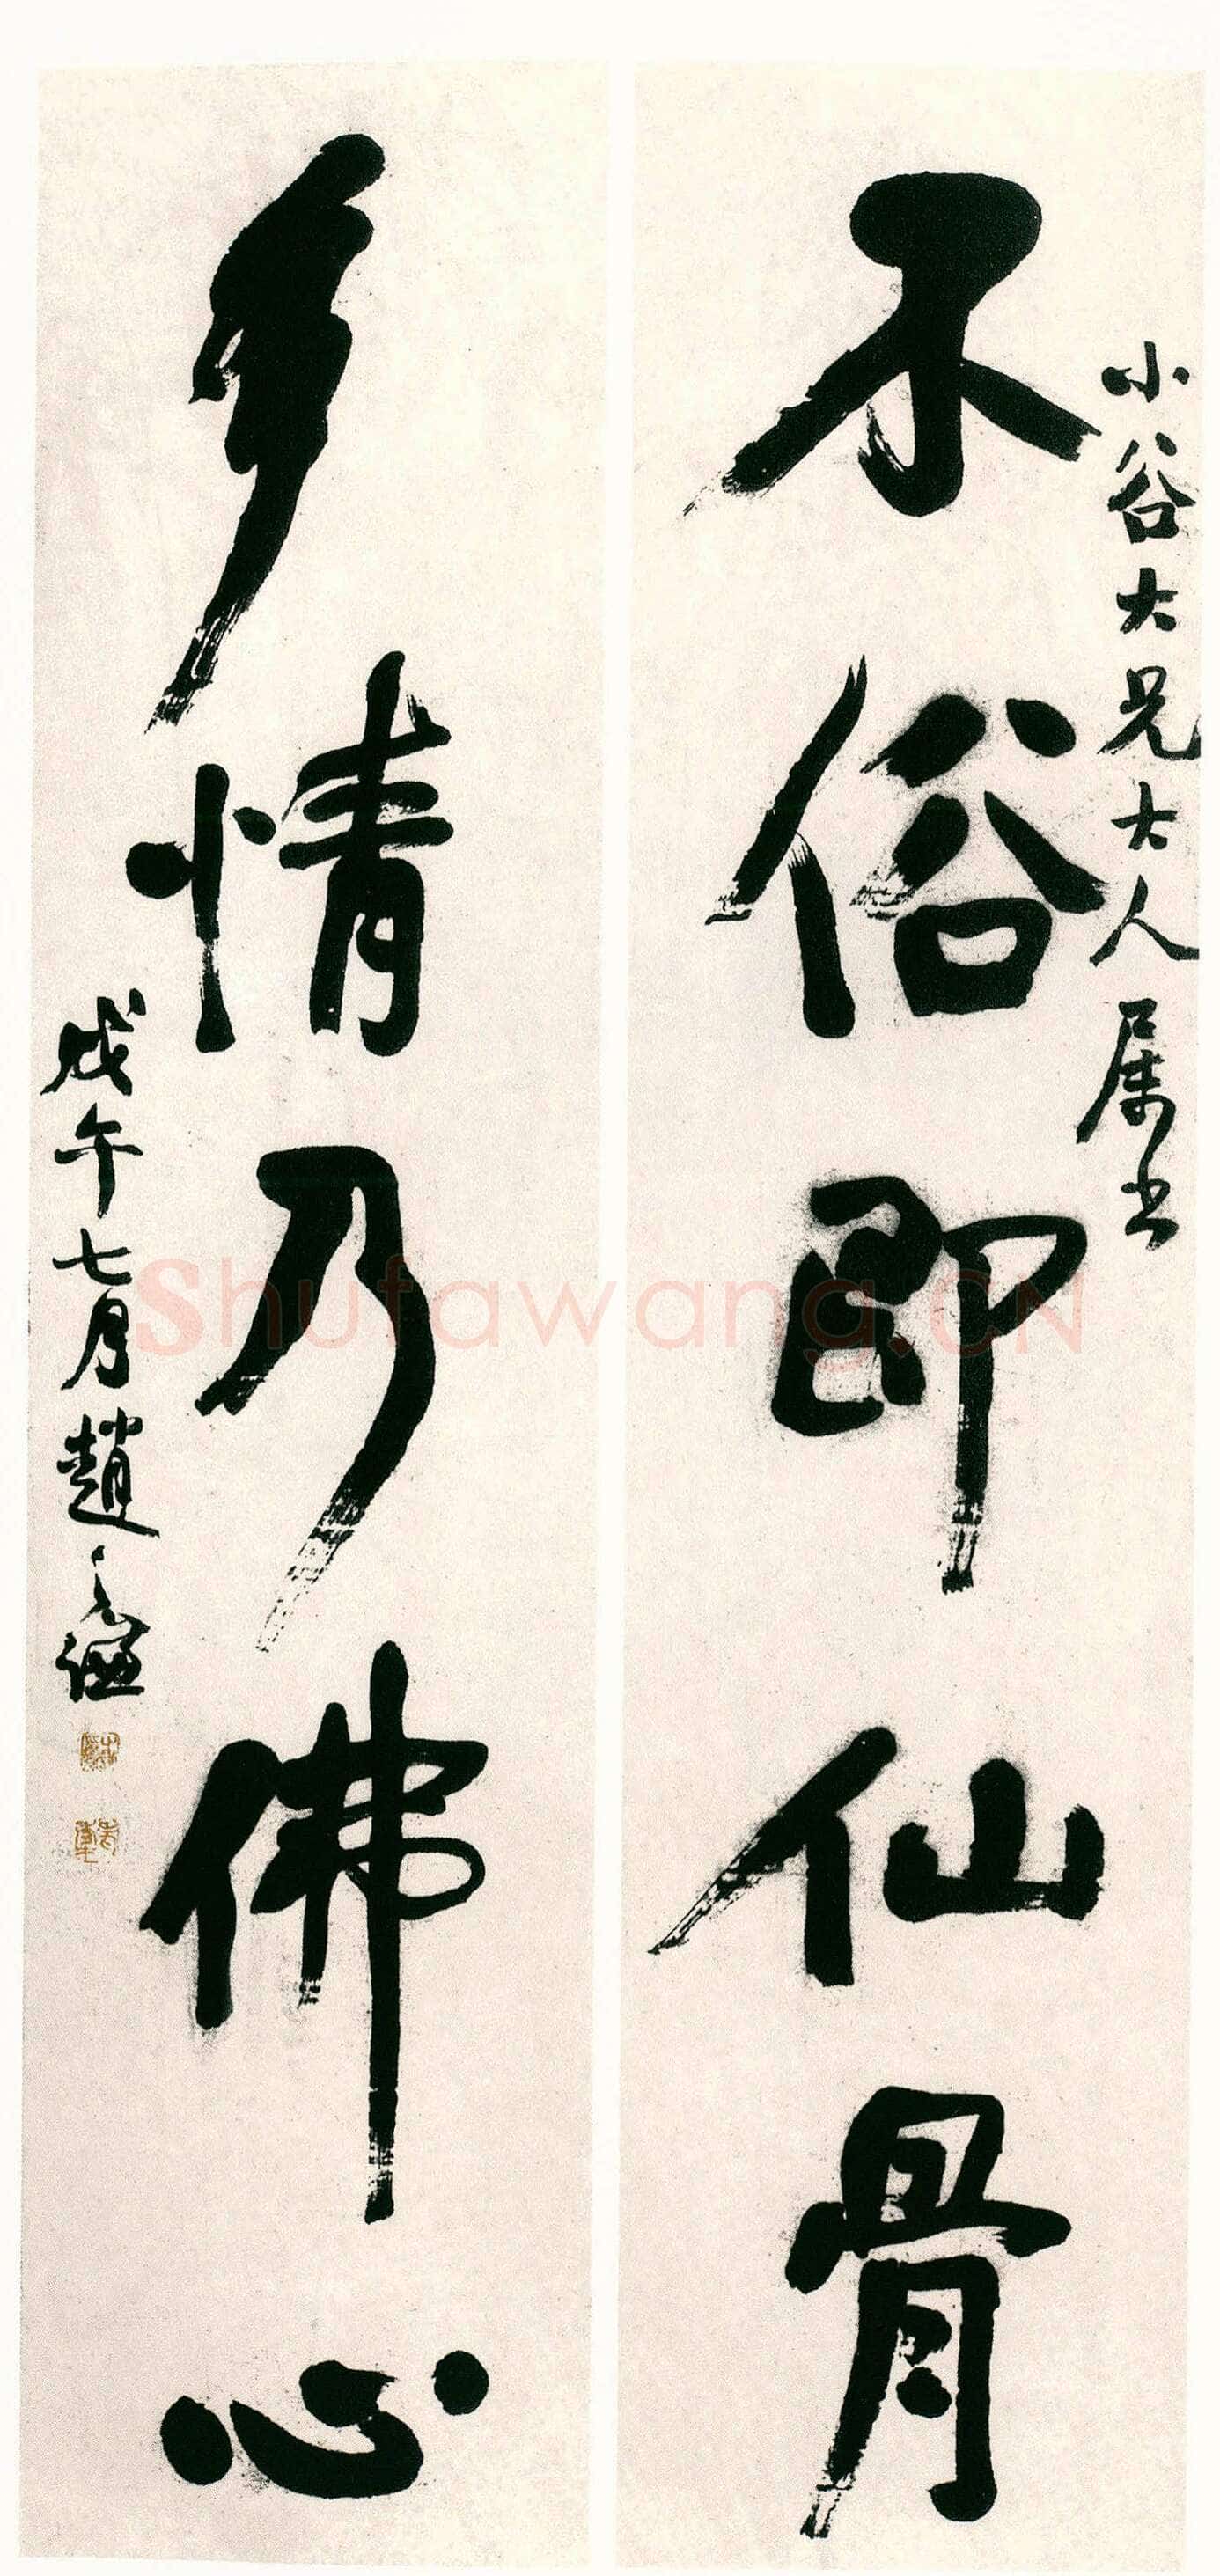 小谷大兄大人属书
不俗即仙骨
多情乃佛心
戊午七月趙之謙
Shufawang.CN